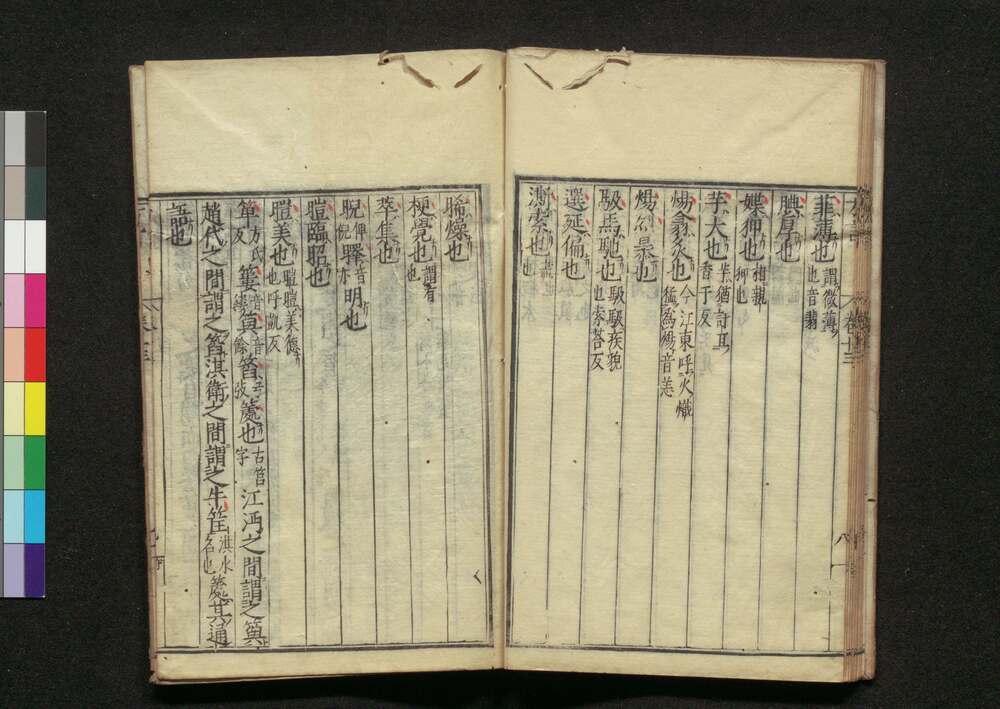 菲薄也 謂微薄也音翡
腆厚也
媟狎也 相親狎也
芋大也 芋猶訏耳香于反
煬翕炙也 今江東呼火熾猛爲煬音恙
煬烈暴也
馺馬馳也 馺馺疾貌也索荅反
選延徧也
澌索也 盡也
晞燥也
梗覺也 謂直也
萃集也
睨 俾倪 睪 音亦 明也
暟臨昭也
暟美也 暟暟美德也呼凱反
箄 方氏反 簍 音縷 籅 音餘 䈪 弓弢 籧也 古筥字 江沔之間謂之籅
趙代之間謂之䈪淇衛之間謂之牛筐 淇水名也 籧其通
語也